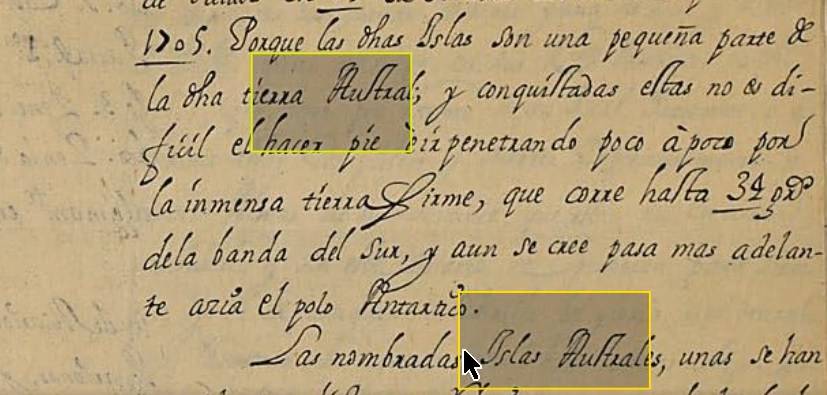 1705. Porque las dhas Islas son una pequeña parte de
la dha tierra Austral; y conquistadas estas no es di-
fícil el hacer pie è ir penetrando poco à poco por
la inmensa tierra Firme, que corre hasta 34 grs
dela banda del Sur, y aun se cree pasa mas adelan-
te azia el polo Antartico.
Las nombradas Islas Australes, unas se han